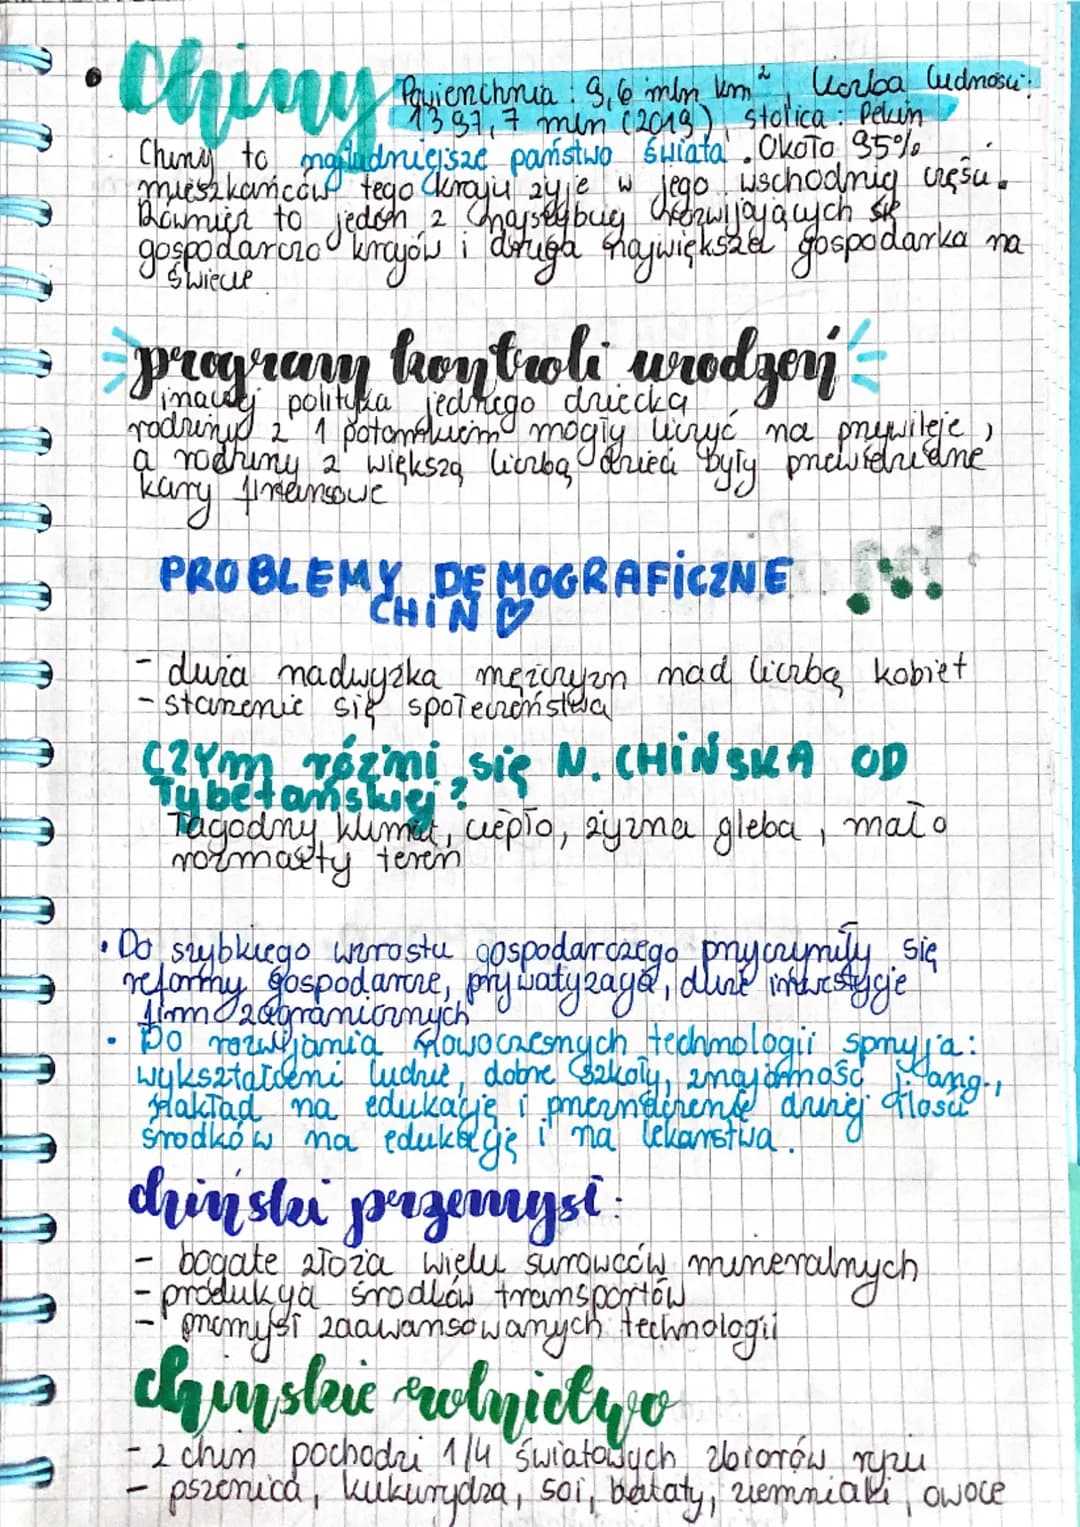 • Chiny Powierzchnia : 9,6 mln km², liczba ludności:
1397,7 mln (2019), stolica : Pekin
Chiny to najludniejsze państwo świata. Około 95%
mieszkańców tego kraju żyje w jego wschodniej części.
Również to jeden z najszybciej rozwijających się
gospodarczo krajów i druga największa gospodarka na
świecie
program kontroli urodzeń
inaczej polityka jednego dziecka
rodziny z 1 potomkiem mogły liczyć na przywileje,
a rodziny z większą liczbą dzieci były przewidziane
kary finansowe
PROBLEMY DEMOGRAFICZNE
CHIN
- duża nadwyżka mężczyzn nad liczbą kobiet
- starzenie się społeczeństwa
CZYM różni się N. CHIŃSKA OD
Tybetańskiej?
Łagodny klimat, ciepło, żyzna gleba, mało
rozmaity teren
• Do szybkiego wzrostu gospodarczego przyczyniły się
reformy gospodarcze, prywatyzacja, duże inwestycje
firm zagranicznych
• Do rozwijania nowoczesnych technologii sprzyja:
wykształceni ludzie, dobre szkoły, znajomość j. ang.,
nakład na edukację i przeznaczenie dużej ilości
środków na edukację i na lekarstwa.
chiński przemysł:
- bogate złoża wielu surowców mineralnych
- produkcja środków transportów
- przemysł zaawansowanych technologii
chińskie rolnictwo
- z chin pochodzi 1/4 światowych zbiorów ryżu
- pszenica, kukurydza, soi, bataty, ziemniaki, owoce